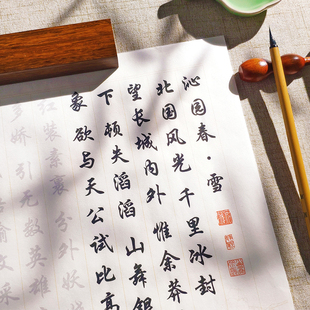 沁园春·雪
北国风光千里冰封
望长城内外惟余莽
下顿失滔滔山舞银
象欲与天公试比高
红装素裹分外妖
多娇引无数英雄
输文采